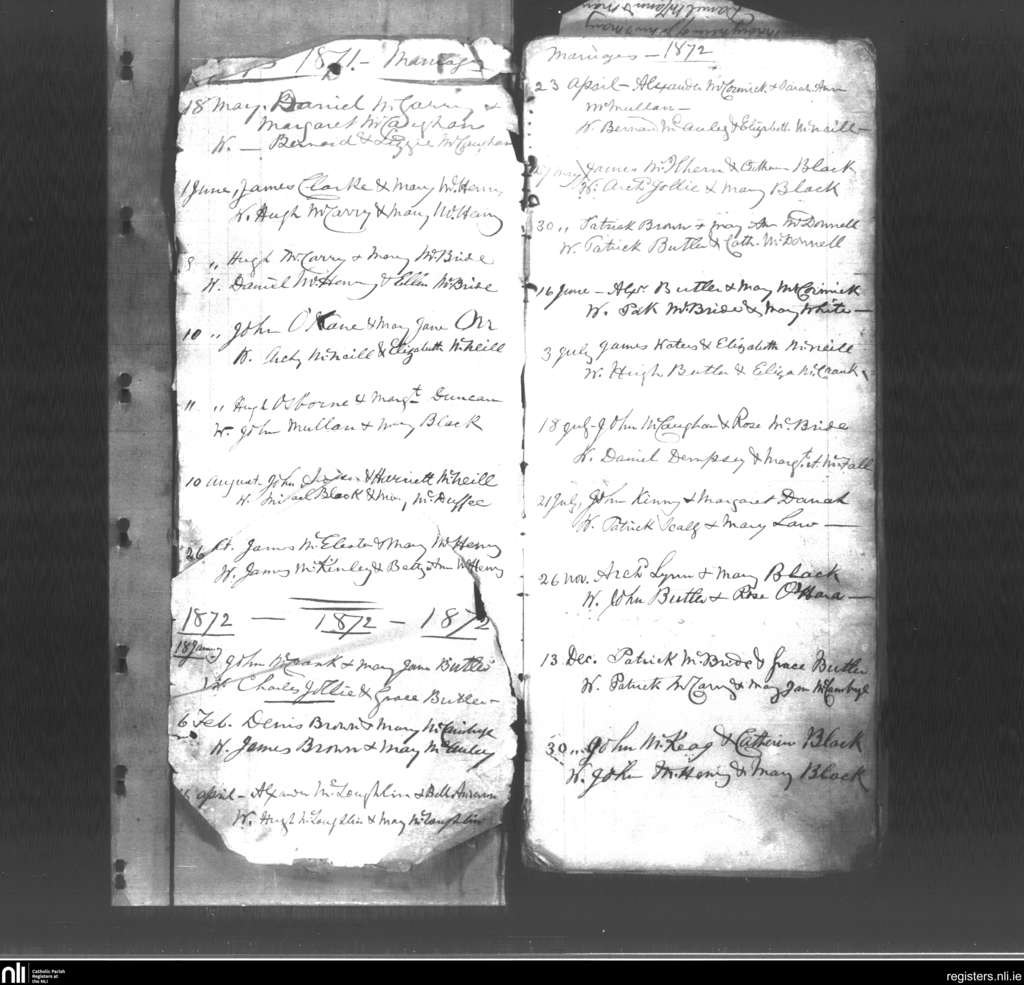 1871 - Marriages
18 May. Daniel McCarry &
Margaret McCaughan
W. — Bernard & Lizzie McCaughan
1 June, James Clarke & Mary McHenry
W. Hugh McCarry & Mary McHenry
9 „ Hugh McCarry & Mary McBride
W. Daniel McHenry & Ellen McBride
10 „ John O'Kane & Mary Jane Orr
W. Archy McNeill & Elizabeth McNeill
11 „ Hugh Osborne & Margt. Duncan
W. John Mullan & Mary Black
10 August. John & Harriett McNeill
W. Michael Black & Mary McDuffee
26 James McElester & Mary McHenry
W. James McKinley & Betty Ann McHenry
1872 — 1872 — 1872
18 January
John McCrank & Mary Jane Butler
W. Charles Jollie & Grace Butler -
6 Feb. Denis Brown & Mary McCambridge
W. James Brown & Mary McAuley
April - Alexander McLoughlin & Bell
W. Hugh McLoughlin & Mary McLaughlin
Daniel McCann & Mary
Marriages — 1872
23 April - Alexander McCormick & Sarah Ann
McMullan —
W. Bernard McAuley & Elizabeth McNeill -
May James McIlhern & Catherine Black
W. Archd Jollie & Mary Black
30 „ Patrick Brown & Mary Ann McDonnell
W. Patrick Butler & Cath. McDonnell
16 June - Alexr. Butler & Mary McCormick
W. Patk McBride & Mary White -
3 July James Kates & Elizabeth McNeill
W. Hugh Butler & Eliza McCrank -
18 July - John McCaughan & Rose McBride
W. Daniel Dempsey & Margaret McFall
21 July, John Kinny & Margaret Darrah
W. Patrick Scally & Mary Law —
26 Nov. Archd Lynn & Mary Black
W. John Butler & Rose O'Hara —
13 Dec. Patrick McBride & Grace Butler
W. Patrick McCarry & Mary Jane
30 „ John McKeag & Catherine Black
W. John McHenry & Mary Black
nli
Catholic Parish
Registers at
the NLI
registers.nli.ie